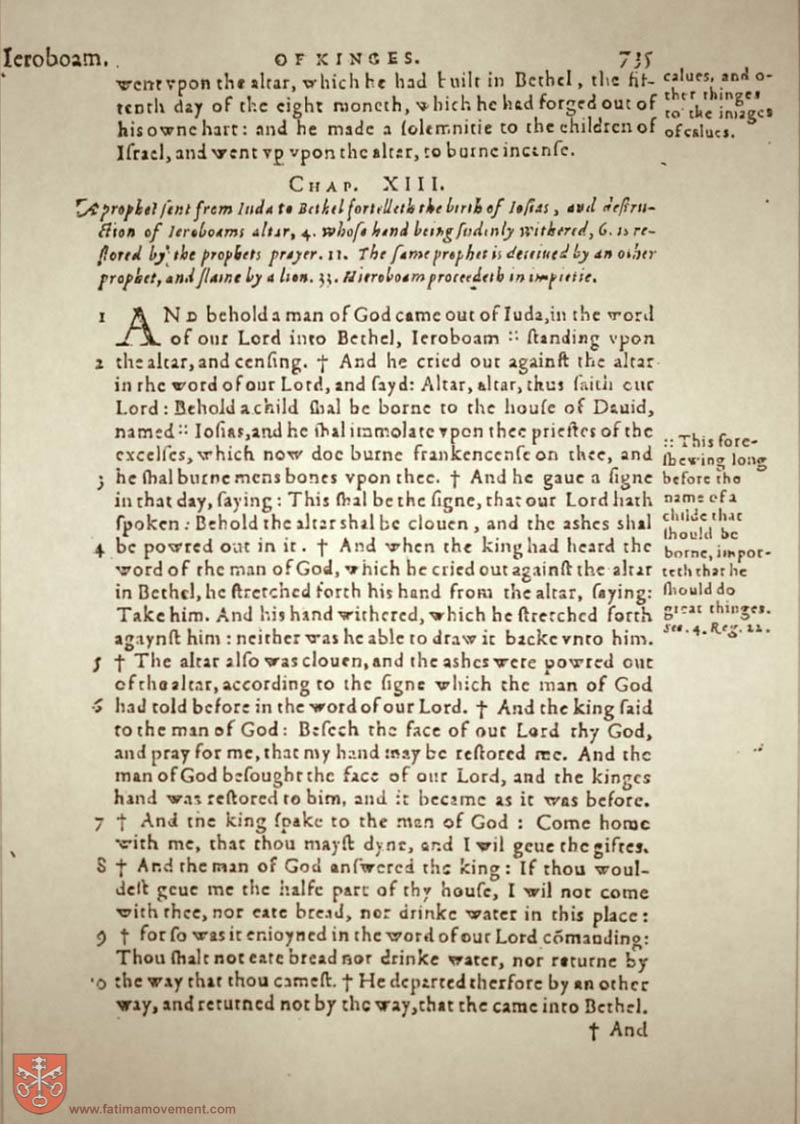 Ieroboam. OF KINGES. 735
went vpon the altar, which he had built in Bethel, the fif-
tenth day of the eight moneth, which he had forged out of
his owne hart: and he made a ſolemnitie to the children of
Iſrael, and went vp vpon the altar, to burne incenſe.
calues, and o-
ther thinges
to the images
of calues.
CHAP. XIII.
A prophet ſent from Iuda to Bethel fortelleth the birth of Ioſias, and deſtru-
ction of Ieroboams altar, 4. whoſe hand being ſudinly withered, 6. is re-
ſtored by the prophets prayer. 11. The ſame prophet is deceiued by an other
prophet, and ſlaine by a lion. 33. Hieroboam proceedeth in impietie.
1 AND behold a man of God came out of Iuda, in the word
of our Lord into Bethel, Ieroboam :: ſtanding vpon
2 the altar, and cenſing. † And he cried out againſt the altar
in the word of our Lord, and ſayd: Altar, altar, thus ſaith our
Lord: Behold a child ſhal be borne to the houſe of Dauid,
named :: Ioſias, and he ſhal immolate vpon thee prieſtes of the
excelſes, which now doe burne frankencenſe on thee, and
3 he ſhal burne mens bones vpon thee. † And he gaue a ſigne
in that day, ſaying: This ſhal be the ſigne, that our Lord hath
ſpoken: Behold the altar shal be clouen, and the ashes shal
4 be powred out in it. † And when the king had heard the
word of the man of God, which he cried out againſt the altar
in Bethel, he ſtretched forth his hand from the altar, ſaying:
Take him. And his hand withered, which he ſtretched forth
agaynſt him: neither was he able to draw it backe vnto him.
:: This fore-
ſhewing long
before the
name of a
childe that
ſhould be
borne, impor-
teth that he
ſhould do
great thinges.
See. 4. Reg. 22.
5 † The altar alſo was clouen, and the ashes were powred out
of the altar, according to the ſigne which the man of God
6 had told before in the word of our Lord. † And the king ſaid
to the man of God: Beſech the face of our Lord thy God,
and pray for me, that my hand may be reſtored me. And the
man of God beſought the face of our Lord, and the kinges
hand was reſtored to him, and it became as it was before.
7 † And the king ſpake to the man of God: Come home
with me, that thou mayſt dyne, and I wil geue the giftes.
8 † And the man of God anſwered the king: If thou woul-
deſt geue me the halfe part of thy houſe, I wil not come
with thee, nor eate bread, nor drinke water in this place:
9 † for ſo was it enioyned in the word of our Lord cõmanding:
Thou ſhalt not eate bread nor drinke water, nor returne by
10 the way that thou cameſt. † He departed therfore by an other
way, and returned not by the way, that the came into Bethel.
† And
www.fatimamovement.com